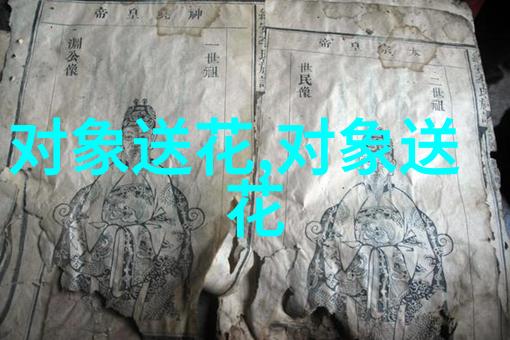 对象送花,对象送
花
神堯皇帝
一世祖
淵公像
太宗皇帝
二世祖
世民像